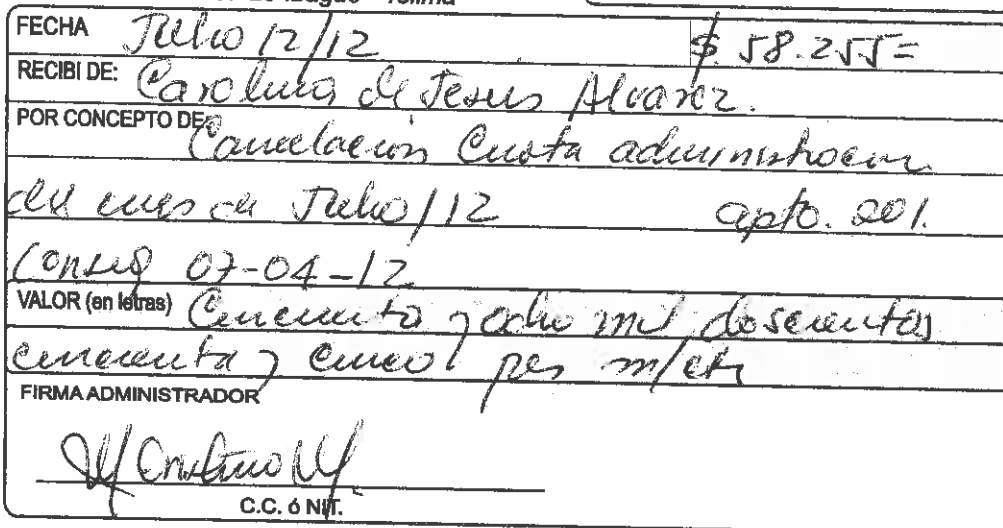 Ibagué - Tolima
FECHA Julio 12/12 $ 58.255=
RECIBI DE: Carolina de Jesus Alvarez.
POR CONCEPTO DE: Cancelacion Cuota administracion
del mes de Julio/12 apto. 201.
Consig 07-04-12
VALOR (en letras) Cincuenta y ocho mil doscientos
cincuenta y cinco pes m/cte
FIRMA ADMINISTRADOR
C.C. ó NIT.